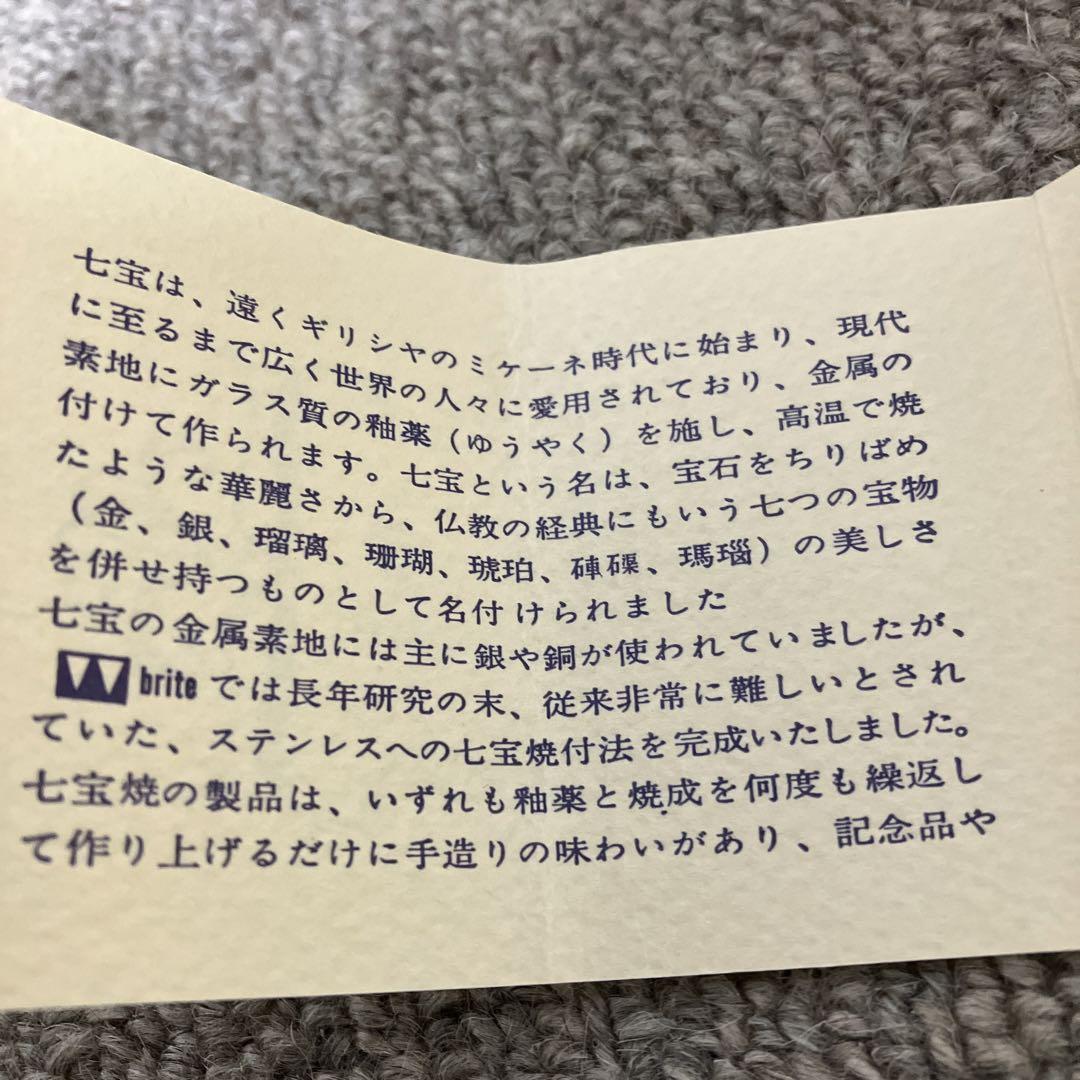 七宝は、遠くギリシヤのミケーネ時代に始まり、現代
に至るまで広く世界の人々に愛用されており、金属の
素地にガラス質の釉薬（ゆうやく）を施し、高温で焼
付けて作られます。七宝という名は、宝石をちりばめ
たような華麗さから、仏教の経典にもいう七つの宝物
（金、銀、瑠璃、珊瑚、琥珀、硨磲、瑪瑙）の美しさ
を併せ持つものとして名付けられました
七宝の金属素地には主に銀や銅が使われていましたが、
W briteでは長年研究の末、従来非常に難しいとされ
ていた、ステンレスへの七宝焼付法を完成いたしました。
七宝焼の製品は、いずれも釉薬と焼成を何度も繰返し
て作り上げるだけに手造りの味わいがあり、記念品や